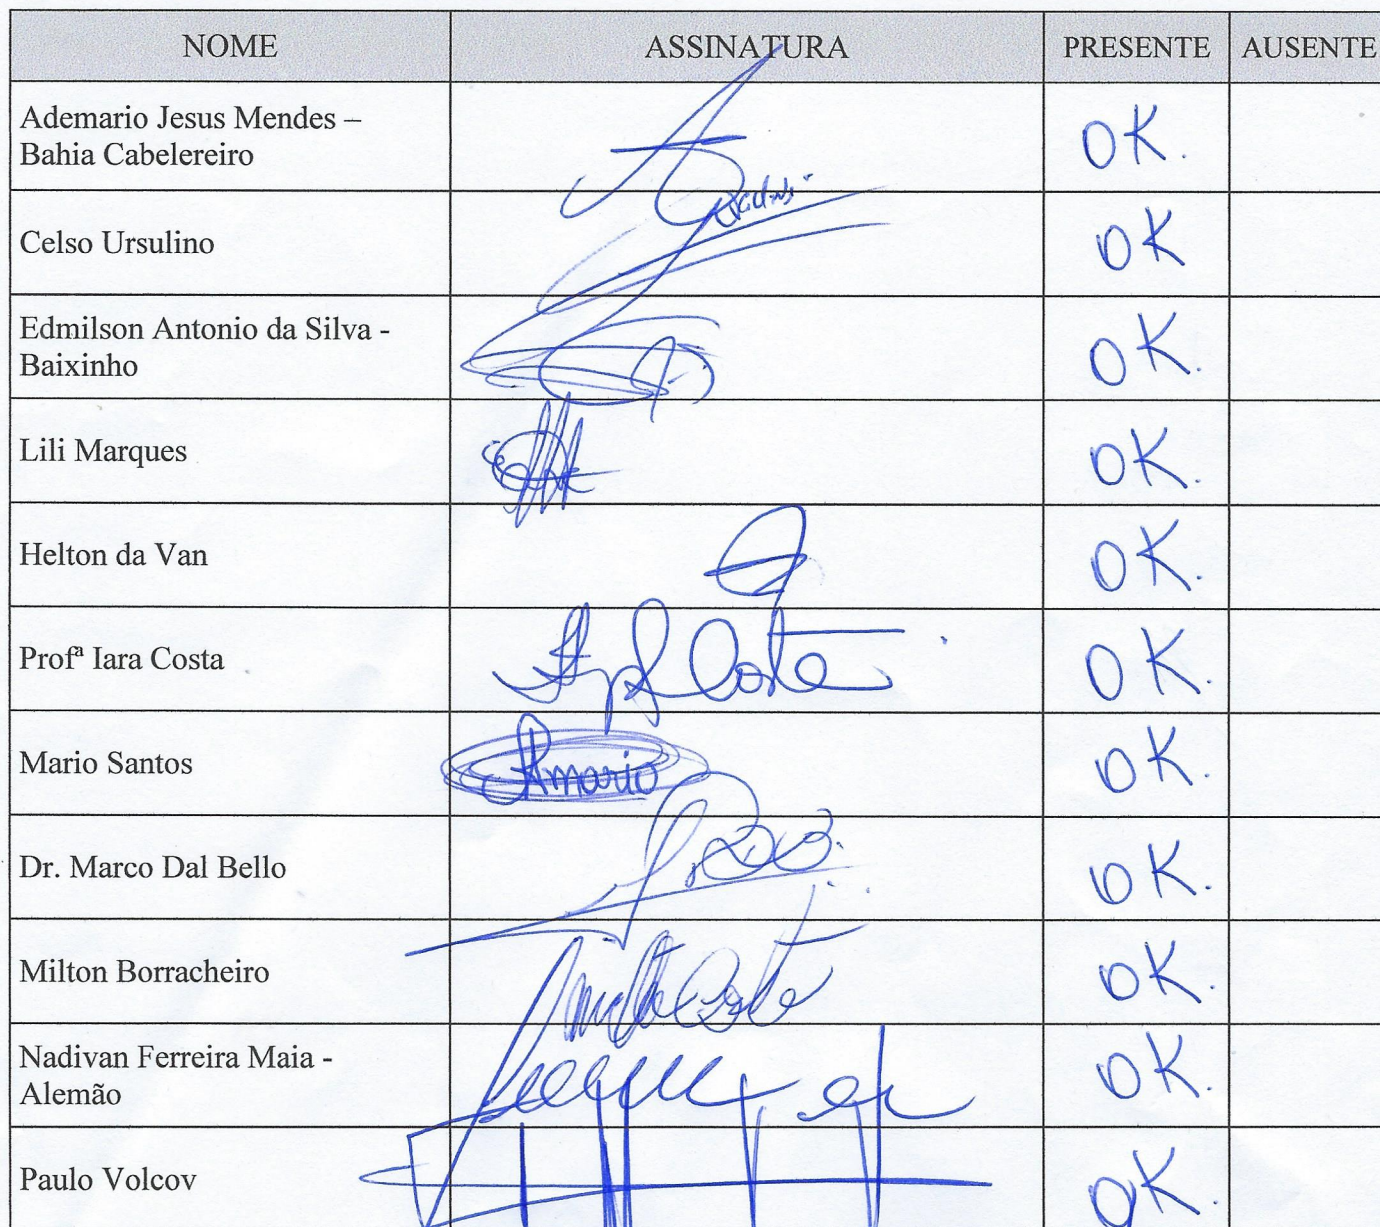 NOME ASSINATURA PRESENTE AUSENTE
Ademario Jesus Mendes –
Bahia Cabelereiro
OK.
Celso Ursulino
OK
Edmilson Antonio da Silva -
Baixinho
OK.
Lili Marques
OK.
Helton da Van
OK.
Profª Iara Costa
Costa
OK.
Mario Santos
mario
OK.
Dr. Marco Dal Bello
OK.
Milton Borracheiro
OK.
Nadivan Ferreira Maia -
Alemão
OK.
Paulo Volcov
OK.